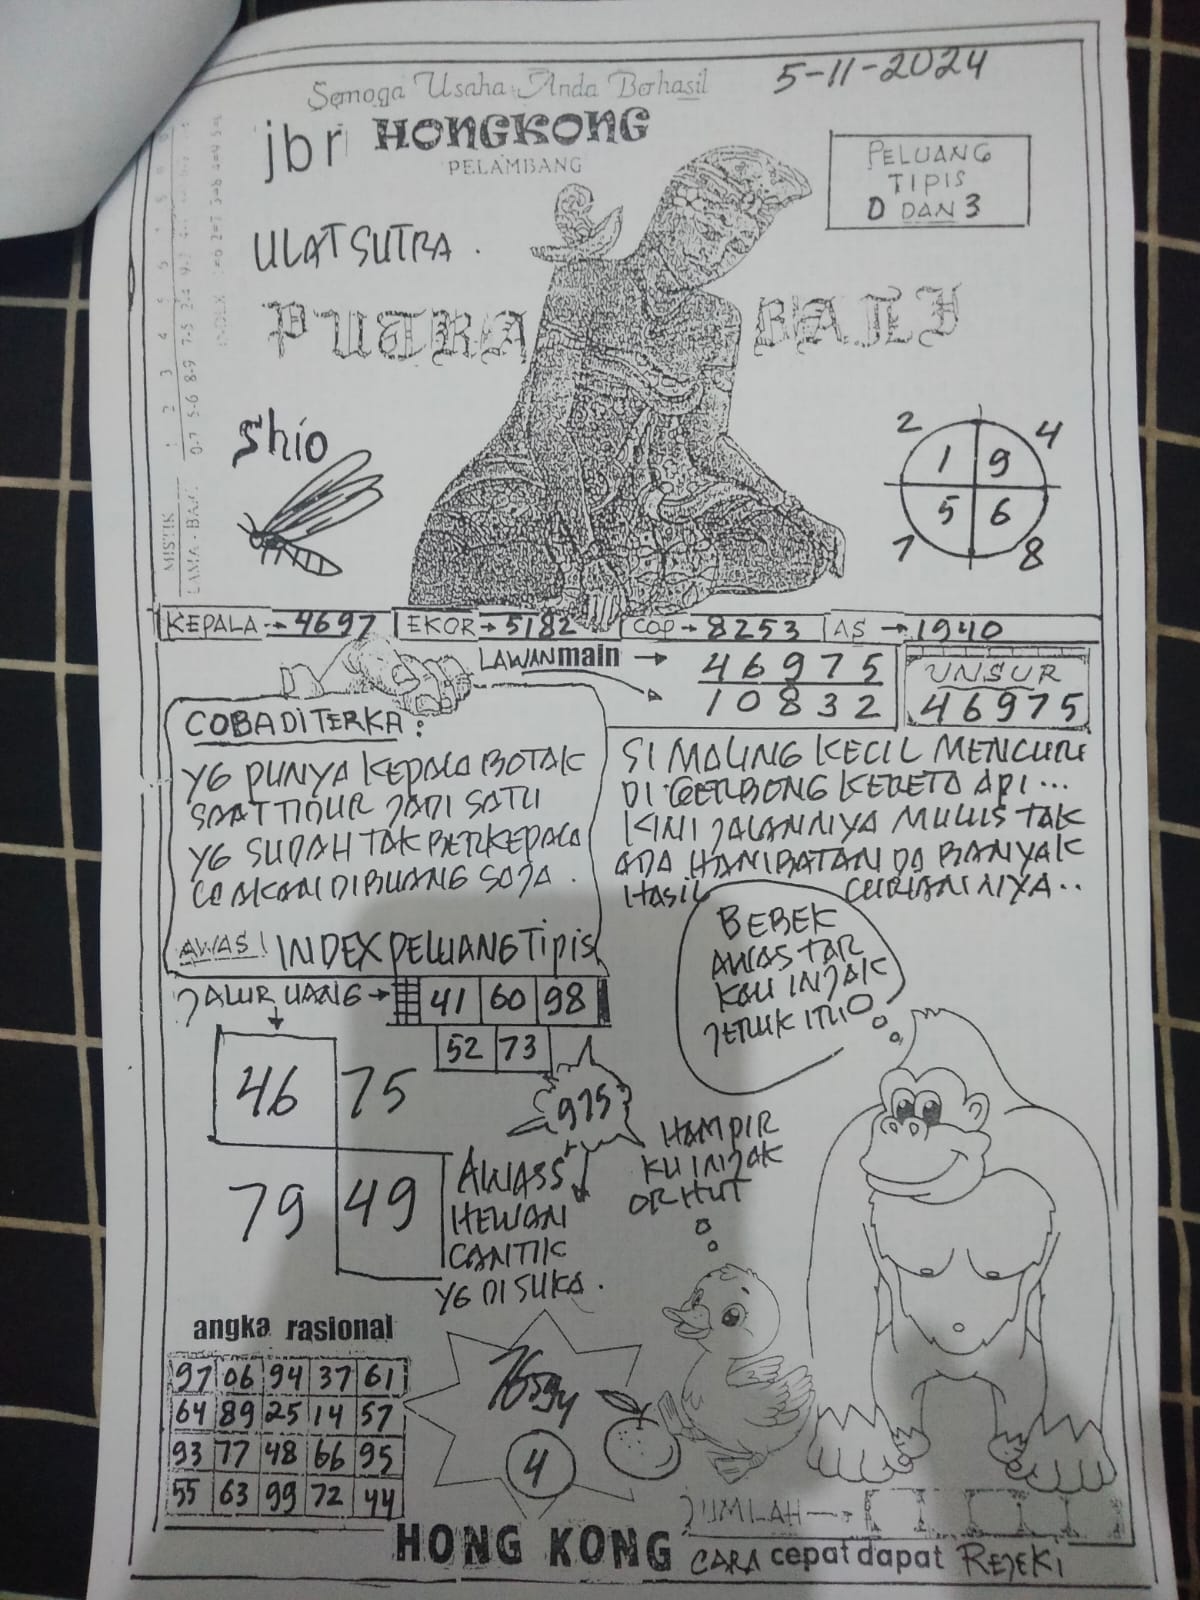 Semoga Usaha Anda Berhasil
5-11-2024
jbr HONGKONG
PELAMBANG
PELUANG
TIPIS
0 DAN 3
ULAT SUTRA.
PUTRA BALI
MISTIK
LAMA - BARU
0-7 5-6 8-9 7-5 2-4
Shio
2 4
1 9
5 6
7 8
KEPALA → 4697 EKOR → 5182 COP → 8253 AS → 1940
LAWAN main → 46975
10832
UNSUR
46975
COBA DITERKA:
YG PUNYA KEPALA BOTAK
SAAT TIDUR JADI SATU
YG SUDAH TAK BERKEPALA
DIBUANG SAJA.
AWAS! INDEX PELUANG TIPIS
SI MALING KECIL MENCURI
DI GERBONG KERETA API...
KINI JALANNYA MULUS TAK
ADA HAMBATAN DA BANYAK
HASIL CURIANNYA..
JALUR UANG → 41 60 98
52 73
46 75
79 49
975
AWASS
HEWAN
CANTIK
YG DI SUKA.
BEBEK
AWAS TAR
KAU INJAK
JERUK ITU
HAMPIR
KU INJAK
angka rasional
97 06 94 37 61
64 89 25 14 57
93 77 48 66 95
55 63 99 72 44
4
JUMLAH →
HONG KONG CARA cepat dapat REJEKI